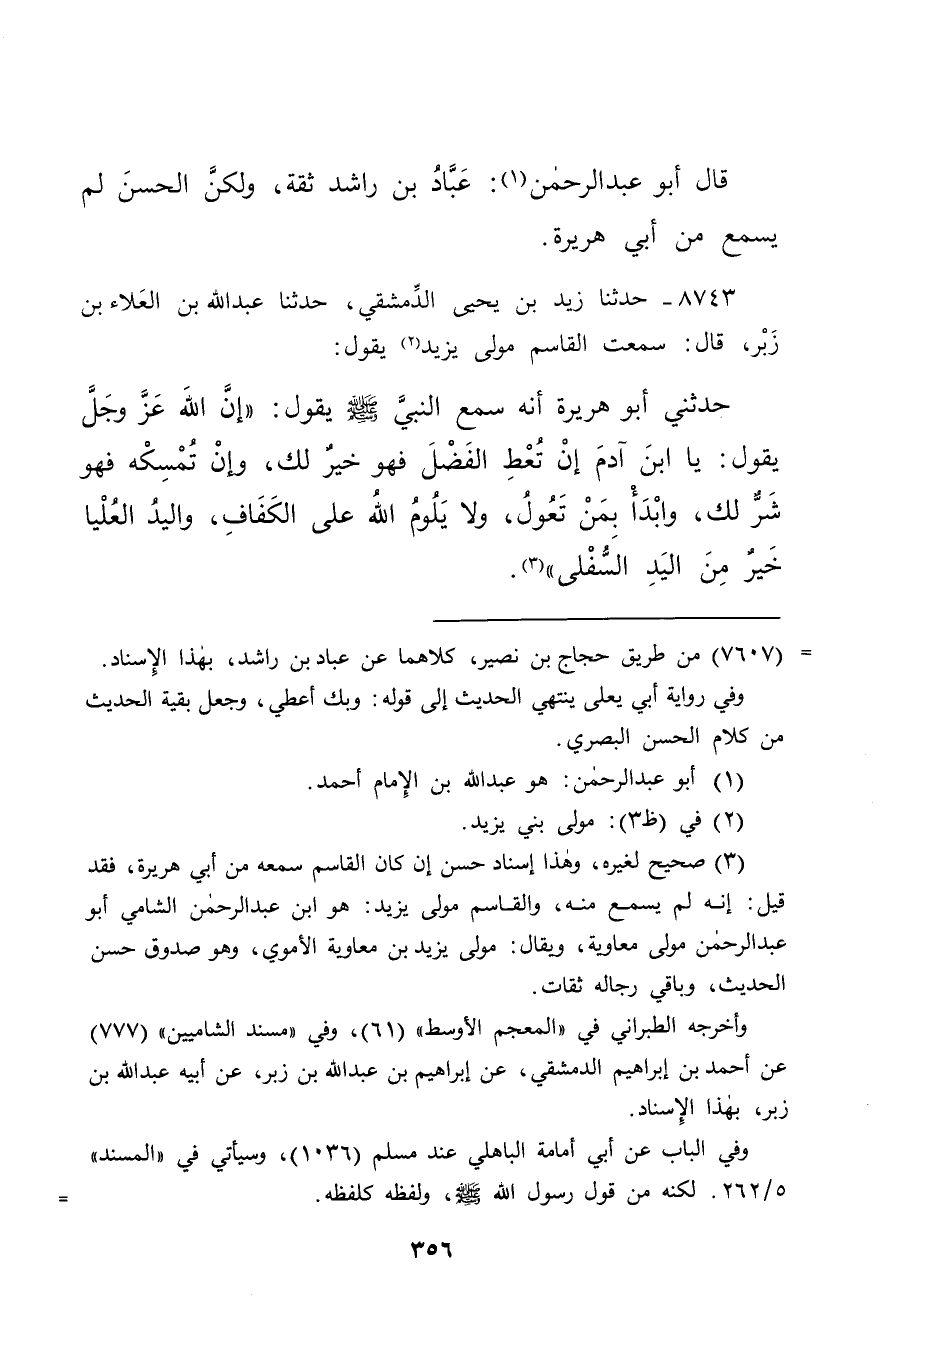 قال أبو عبدالرحمٰن(١): عَبَّادُ بن راشد ثقة، ولكنَّ الحسنَ لم
يسمع من أبي هريرة.
٨٧٤٣ـ حدثنا زيد بن يحيى الدِّمشقي، حدثنا عبدالله بن العَلاء بن
زَبْر، قال: سمعت القاسم مولى يزيد(٢) يقول:
حدثني أبو هريرة أنه سمع النبيَّ ﷺ يقول: «إنَّ اللهَ عَزَّ وجَلَّ
يقول: يا ابنَ آدمَ إنْ تُعْطِ الفَضْلَ فهو خيرٌ لك، وإنْ تُمْسِكْه فهو
شَرٌّ لك، وابْدَأْ بِمَنْ تَعُولُ، ولا يَلُومُ اللهُ على الكَفَافِ، واليدُ العُلْيا
خَيرٌ مِنَ اليَدِ السُّفْلى»(٣).
= (٧٦٠٧) من طريق حجاج بن نصير، كلاهما عن عباد بن راشد، بهٰذا الإِسناد.
وفي رواية أبي يعلى ينتهي الحديث إلى قوله: وبك أعطي، وجعل بقية الحديث
من كلام الحسن البصري.
(١) أبو عبدالرحمٰن: هو عبدالله بن الإِمام أحمد.
(٢) في (ظ٣): مولى بني يزيد.
(٣) صحيح لغيره، وهٰذا إسناد حسن إن كان القاسم سمعه من أبي هريرة، فقد
قيل: إنه لم يسمع منه، والقاسم مولى يزيد: هو ابن عبدالرحمٰن الشامي أبو
عبدالرحمٰن مولى معاوية، ويقال: مولى يزيد بن معاوية الأموي، وهو صدوق حسن
الحديث، وباقي رجاله ثقات.
وأخرجه الطبراني في «المعجم الأوسط» (٦١)، وفي «مسند الشاميين» (٧٧٧)
عن أحمد بن إبراهيم الدمشقي، عن إبراهيم بن عبدالله بن زبر، عن أبيه عبدالله بن
زبر، بهٰذا الإِسناد.
وفي الباب عن أبي أمامة الباهلي عند مسلم (١٠٣٦)، وسيأتي في «المسند»
٢٦٢/٥. لكنه من قول رسول الله ﷺ، ولفظه كلفظه. =
٣٥٦